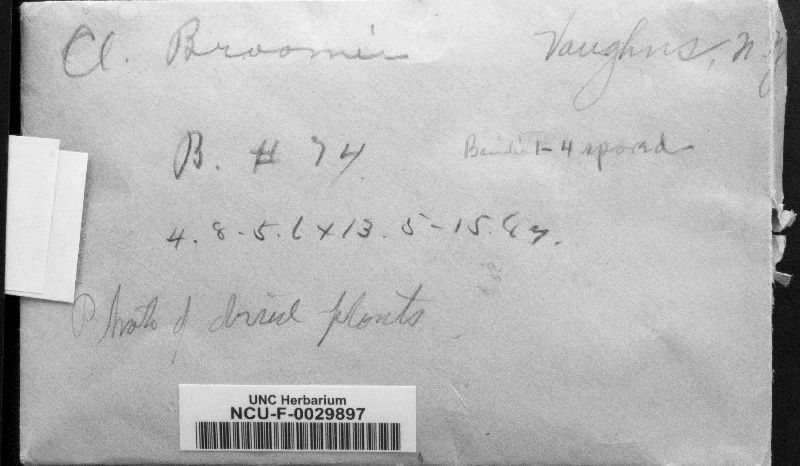 Cl. Broomei Vaughns, N.Y.
B. # 74 Basidia 1-4 spored
4.8-5.6 x 13.5-15.6 μ.
Photo of dried plants
UNC Herbarium
NCU-F-0029897